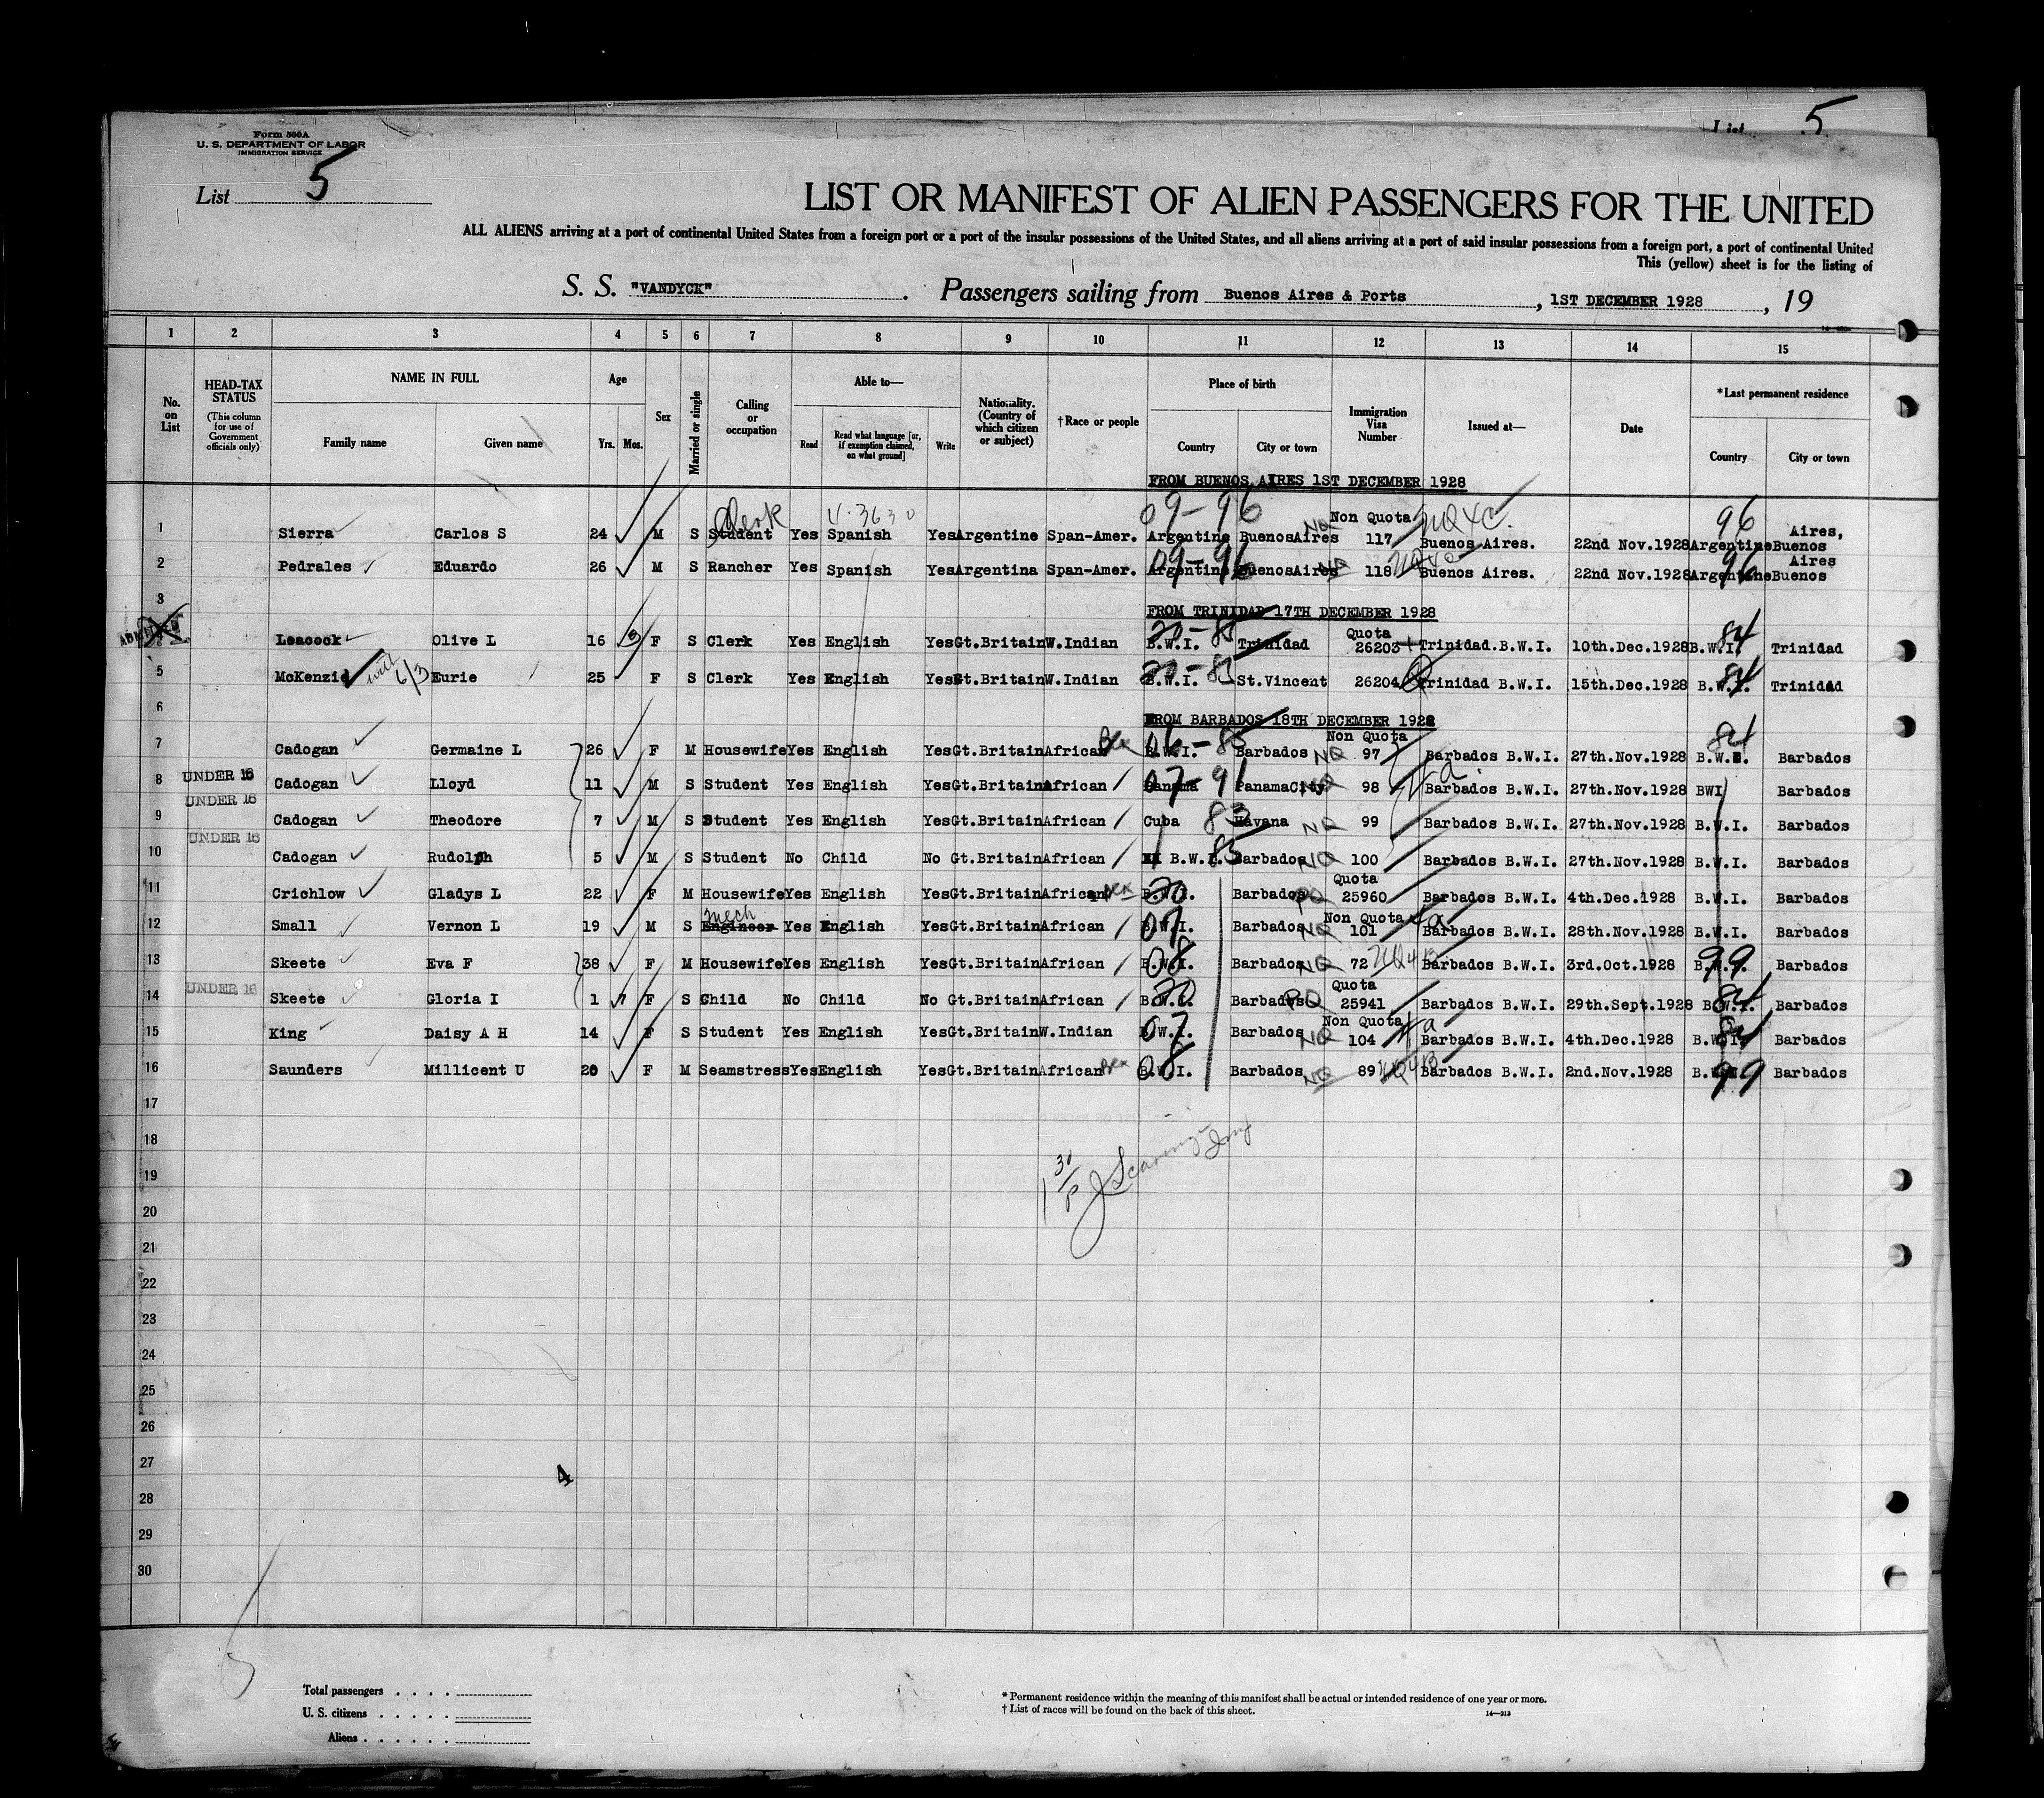 List 5
Form 500A
U. S. DEPARTMENT OF LABOR
IMMIGRATION SERVICE
List 5
LIST OR MANIFEST OF ALIEN PASSENGERS FOR THE UNITED
ALL ALIENS arriving at a port of continental United States from a foreign port or a port of the insular possessions of the United States, and all aliens arriving at a port of said insular possessions from a foreign port, a port of continental United
This (yellow) sheet is for the listing of
S. S. "VANDYCK". Passengers sailing from Buenos Aires & Ports, 1ST DECEMBER 1928, 19
1 2 3 4 5 6 7 8 9 10 11 12 13 14 15
No. on List
HEAD-TAX STATUS
(This column for use of Government officials only)
NAME IN FULL
Family name Given name
Age
Yrs. Mos.
Sex
Married or single
Calling or occupation
Able to—
Read Read what language [or, if exemption claimed, on what ground] Write
Nationality. (Country of which citizen or subject)
†Race or people
Place of birth
Country City or town
Immigration Visa Number
Issued at—
Date
*Last permanent residence
Country City or town
FROM BUENOS AIRES 1ST DECEMBER 1928
Clerk 09-96 Non Quota 96 Aires,
1 Sierra Carlos S 24 M S Student Yes Spanish Yes Argentine Span-Amer. Argentine BuenosAires NQ 117 Buenos Aires. 22nd Nov.1928 Argentine Buenos
09-96 96 Aires
2 Pedrales Eduardo 26 M S Rancher Yes Spanish Yes Argentina Span-Amer. Argentine BuenosAires 118 Buenos Aires. 22nd Nov.1928 Argentine Buenos
3
FROM TRINIDAD 17TH DECEMBER 1928
ADMITTED 20-85 Quota 84
Leacock Olive L 16 3 F S Clerk Yes English Yes Gt.Britain W.Indian B.W.I. Trinidad 26203 Trinidad.B.W.I. 10th.Dec.1928 B.W.I. Trinidad
5 McKenzie 6/3 Eurie 25 F S Clerk Yes English Yes Gt.Britain W.Indian B.W.I. 85 St.Vincent 26204 Trinidad B.W.I. 15th.Dec.1928 B.W.I. 84 Trinidad
6
FROM BARBADOS 18TH DECEMBER 1928
Non Quota 84
7 Cadogan Germaine L 26 F M Housewife Yes English Yes Gt.Britain African B.W.I. 06-85 Barbados NQ 97 Barbados B.W.I. 27th.Nov.1928 B.W.I. Barbados
UNDER 16
8 Cadogan Lloyd 11 M S Student Yes English Yes Gt.Britain African Panama 07-91 PanamaCity NQ 98 Barbados B.W.I. 27th.Nov.1928 BWI Barbados
UNDER 16
9 Cadogan Theodore 7 M S Student Yes English Yes Gt.Britain African Cuba 83 Havana NQ 99 Barbados B.W.I. 27th.Nov.1928 B.W.I. Barbados
UNDER 16
10 Cadogan Rudolph 5 M S Student No Child No Gt.Britain African B.W.I. 85 Barbados NQ 100 Barbados B.W.I. 27th.Nov.1928 B.W.I. Barbados
Quota
11 Crichlow Gladys L 22 F M Housewife Yes English Yes Gt.Britain African B.W.I. 20 Barbados 25960 Barbados B.W.I. 4th.Dec.1928 B.W.I. Barbados
mech Non Quota
12 Small Vernon L 19 M S Engineer Yes English Yes Gt.Britain African B.W.I. 07 Barbados NQ 101 Barbados B.W.I. 28th.Nov.1928 B.W.I. Barbados
13 Skeete Eva F 38 F M Housewife Yes English Yes Gt.Britain African B.W.I. 08 Barbados NQ 72 Barbados B.W.I. 3rd.Oct.1928 B.W.I. 99 Barbados
UNDER 16 Quota
14 Skeete Gloria I 1 7 F S Child No Child No Gt.Britain African B.W.I. 20 Barbados 25941 Barbados B.W.I. 29th.Sept.1928 B.W.I. 84 Barbados
Non Quota
15 King Daisy A H 14 F S Student Yes English Yes Gt.Britain W.Indian B.W.I. 07 Barbados NQ 104 Barbados B.W.I. 4th.Dec.1928 B.W.I. 84 Barbados
16 Saunders Millicent U 20 F M Seamstress Yes English Yes Gt.Britain African B.W.I. 08 Barbados NQ 89 Barbados B.W.I. 2nd.Nov.1928 B.W.I. 99 Barbados
17
18
19
20
21
22
23
24
25
26
27
4
28
29
30
Total passengers . . . .
U. S. citizens . . . . .
Aliens . . . . . .
* Permanent residence within the meaning of this manifest shall be actual or intended residence of one year or more.
† List of races will be found on the back of this sheet.
14—313